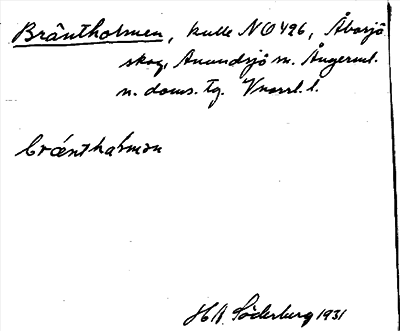 Bräntholmen, kulle NO 426, Åbosjö
skog, Anundsjö sn. Ångerml.
n. doms. tg. Vnorrl. l.
bräntholmən
H.A. Söderberg 1931